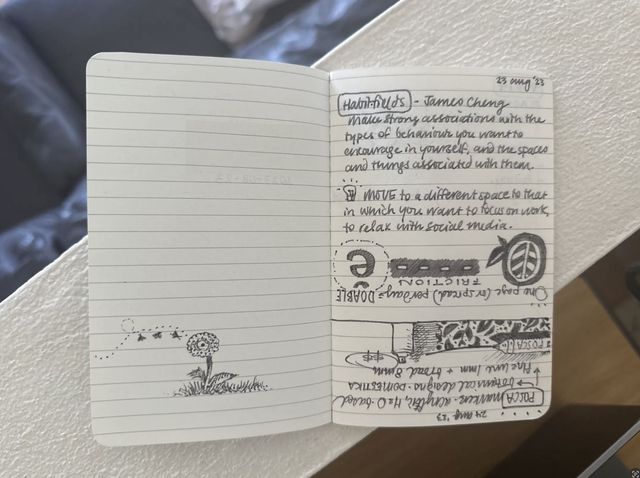 23 aug '23
Habitfields - James Cheng
Make strong associations with the
types of behaviour you want to
encourage in yourself, and the spaces
and things associated with them.
MOVE to a different space to that
in which you want to focus on work,
to relax with social media.
24 aug '23
POSCA markers - acrylic, H2O-based
→ botanical designs - DOMESTIKA
→ Fine line 1mm + broad 8mm
$$
POSCA
One page (or spread) per day = DOABLE
FRICTION
e